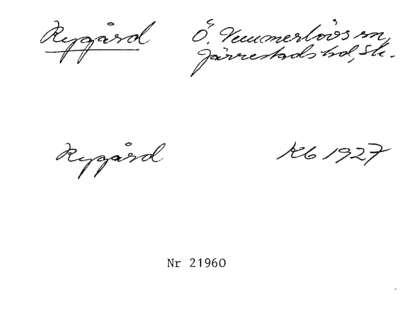 Nygård Ö. Vemmerlövs sn,
Järrestads hd, Sk.
Nygård Kb 1927
Nr 21960